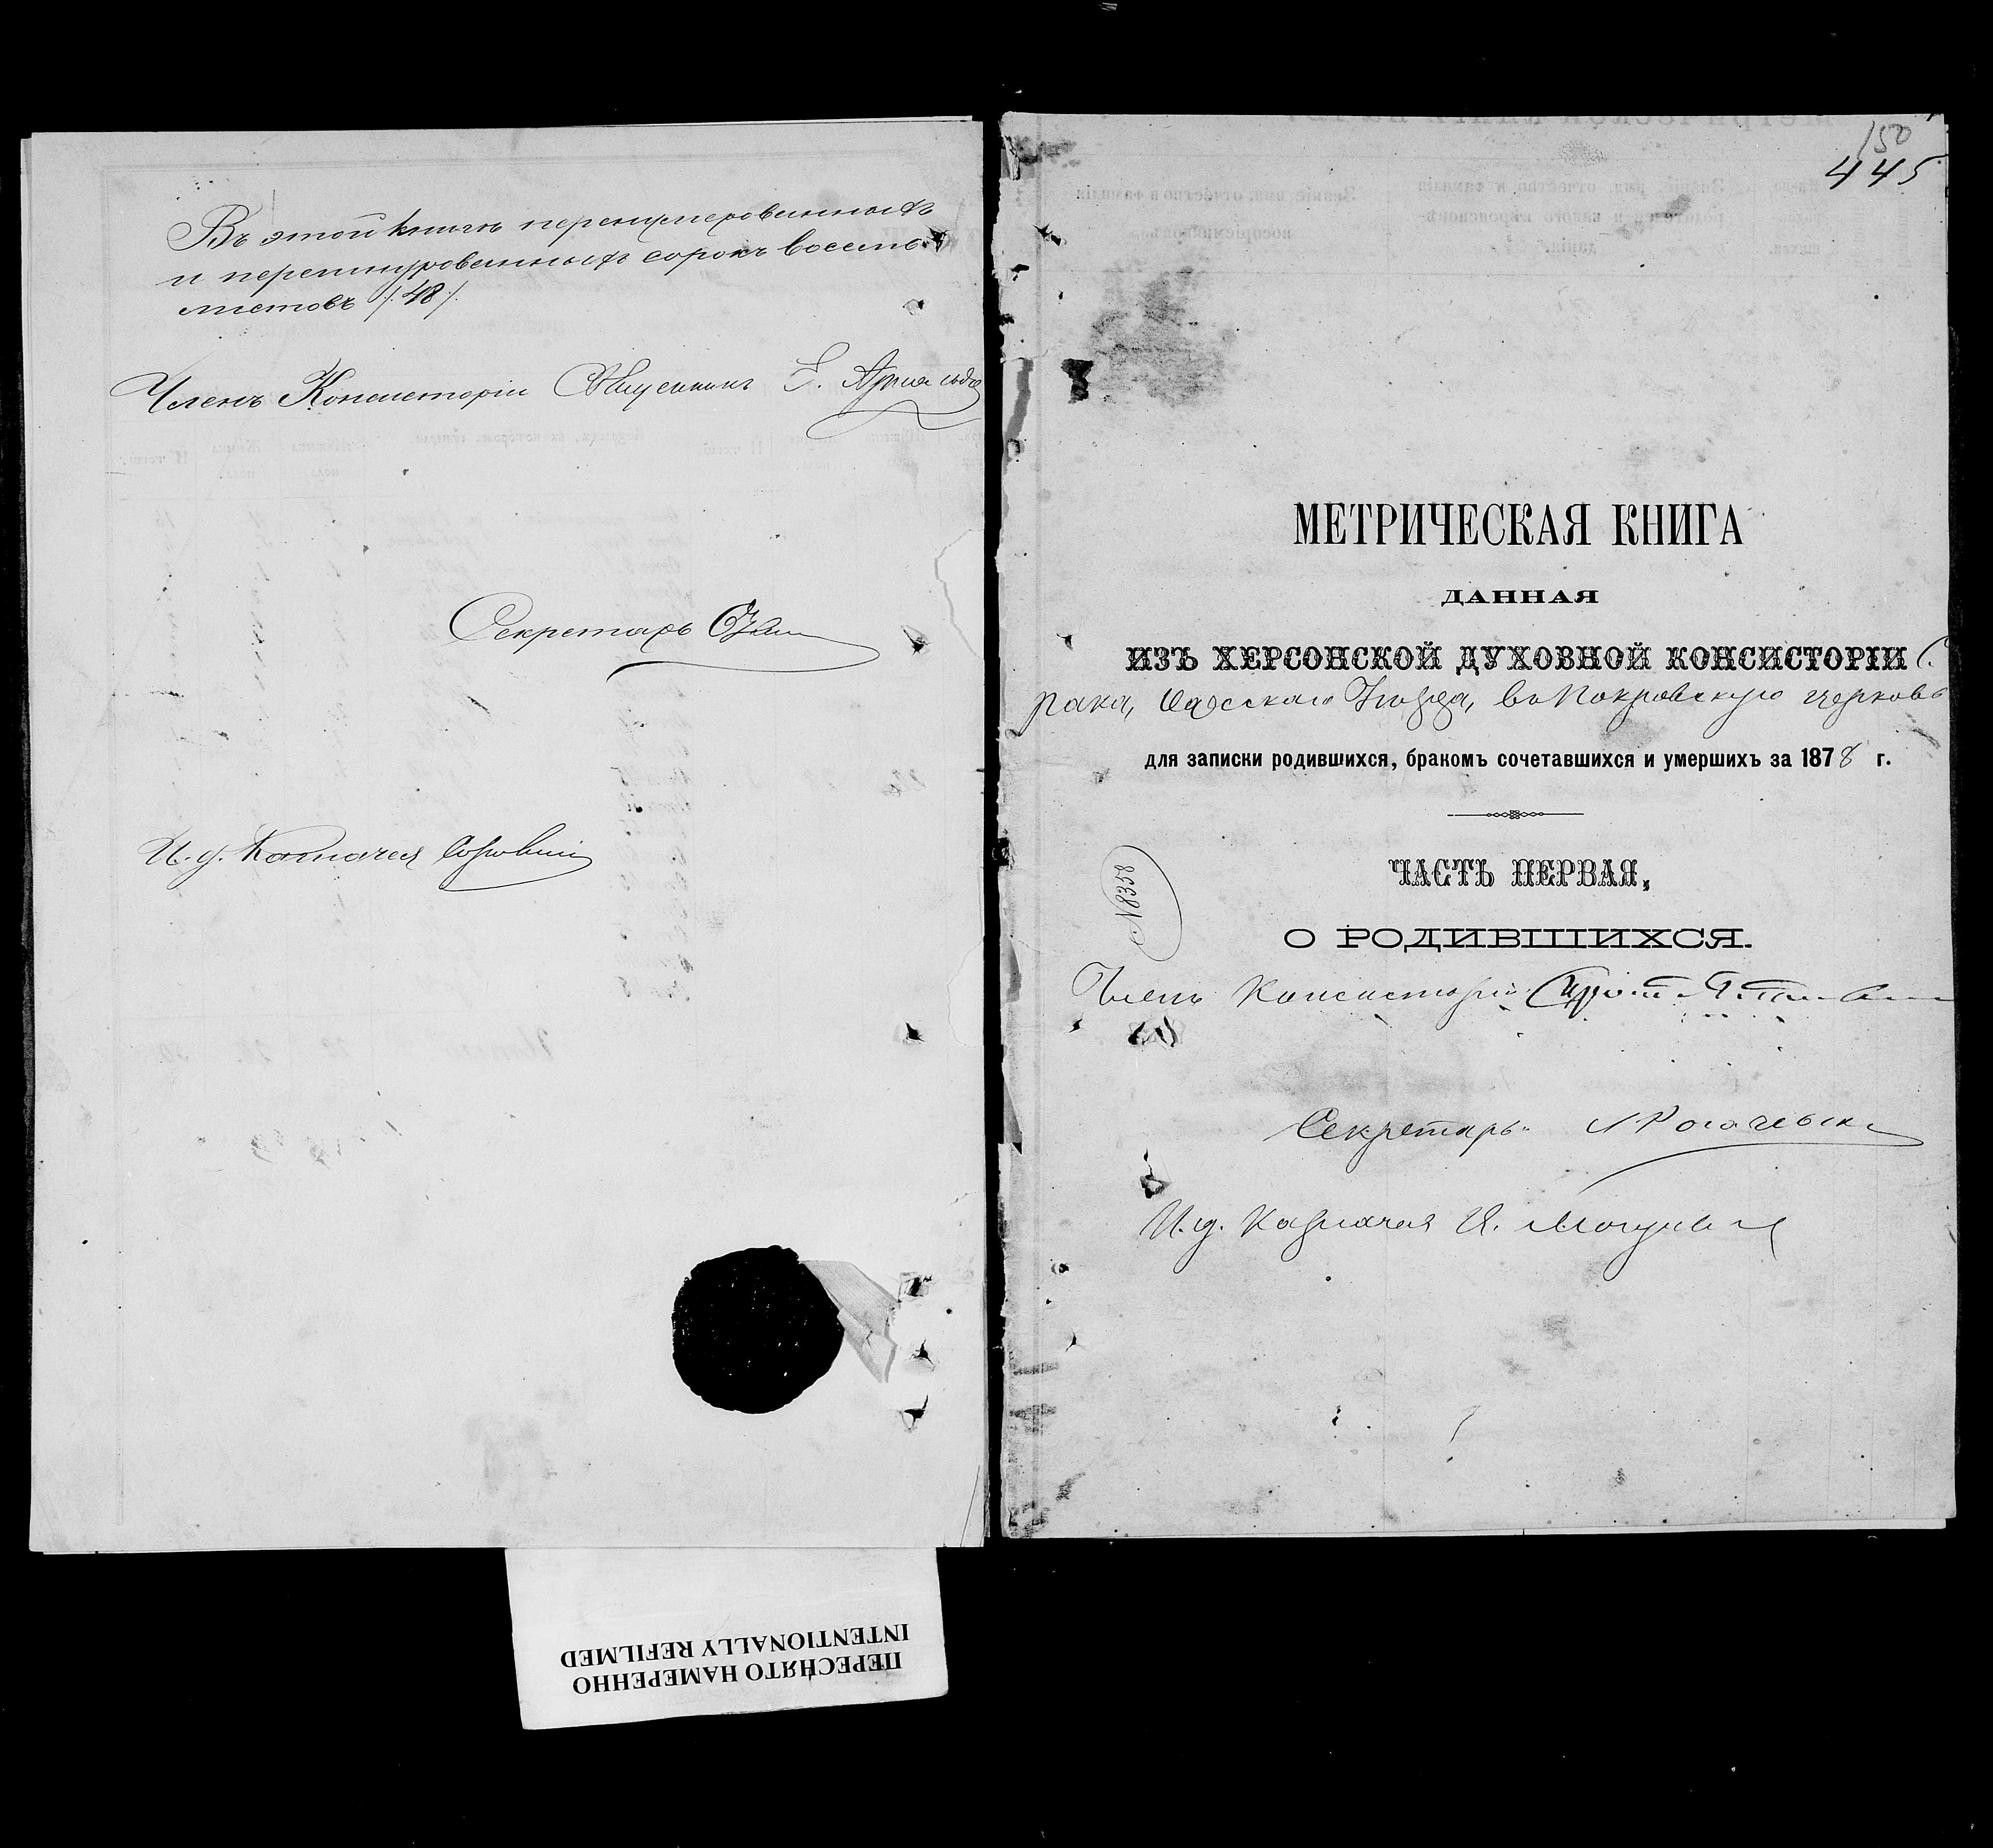 Въ этой книгѣ перенумерованныхъ
и перешнурованныхъ сорокъ восемь
листовъ /:48:/.
Членъ Консисторіи Священникъ
Секретарь
И. д. Казначея
150
445
МЕТРИЧЕСКАЯ КНИГА
ДАННАЯ
ИЗЪ ХЕРСОНСКОЙ ДУХОВНОЙ КОНСИСТОРІИ С.
рака, Одесскаго Уѣзда, въ Покровскую церковь
для записки родившихся, бракомъ сочетавшихся и умершихъ за 1878 г.
№338
ЧАСТЬ ПЕРВАЯ,
О РОДИВШИХСЯ.
Членъ Консисторіи
Секретарь
И. д. Казначея И.
ПЕРЕСНЯТО НАМЕРЕННО
INTENTIONALLY REFILMED